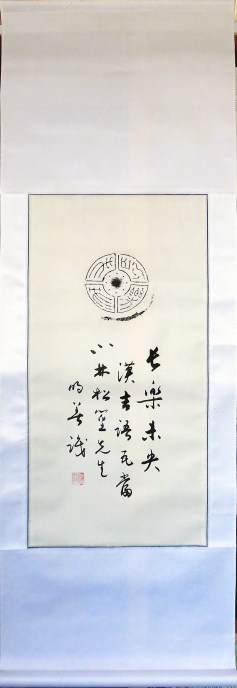 長樂未央
漢吉語瓦當
小林松篁先生
明善識